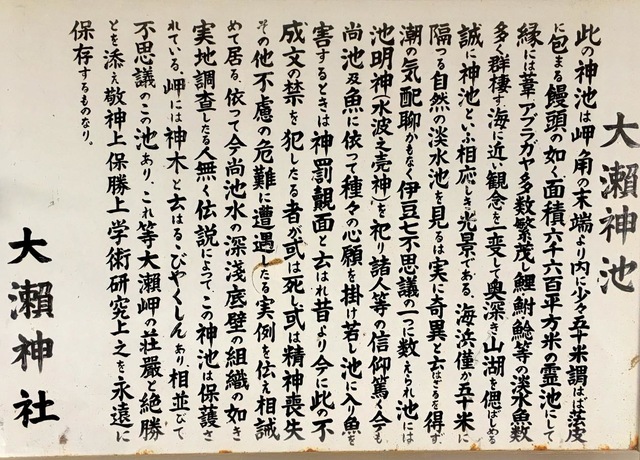 大瀬神池
此の神池は岬ノ角の末端より内に少々五十米謂はば葉皮
に包まる饅頭の如く面積六千六百平方米の霊池にして
縁には葦アブラガヤ多数繁茂し鯉鮒鯰等の淡水魚数
多く群棲す海に近い観念を一変して奥深き山湖を偲ばしめる
誠に神池といふ相応しき光景である、海浜僅か五十米に
隔つる自然の淡水池を見るは実に奇異と云はざるを得ず
潮の気配聊かもなく伊豆七不思議の一つに数えられ池には
池明神(水波之売神)を祀り諸人等の信仰篤く今も
尚池及魚に依って種々の心願を掛け若し池に入り魚を
害するときは神罰覿面と云はれ昔より今に此の不
成文の禁を犯したる者が或は死し或は精神喪失
その他不慮の危難に遭遇しる実例を伝え相誡
めて居る、依って今尚池水の深淺底壁の組織の如き
実地調査したる人無く伝説によって、この神池は保護さ
れている、岬には神木と云はるゝびやくしんあり相並びて
不思議のこの池あり、これ等大瀬岬の荘嚴と絶勝
とを添え敬神上保勝上学術研究上之を永遠に
保存するものなり。
大瀬神社